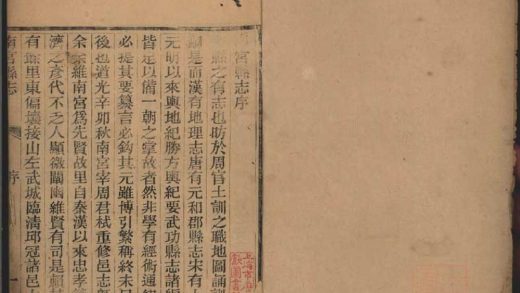 南宮縣志序
縣之有志也昉於周官土訓之職地圖誦訓
是而漢有地理志唐有元和郡縣志宋有
元明以來輿地紀勝方輿紀要武功縣志諸
皆足以備一朝之掌故者然非學有經術通
必提其要纂言必鈎其元雖博引繁稱終未
後也道光辛卯秋南宮宰周君栻重修邑志
余余維南宮為先賢故里自秦漢以來忠孝
濟之彥代不乏人顯微闡幽維賢有司是賴
有餘里東偏壤接山左武城臨清邱冠諸邑
南宮縣志
序
一